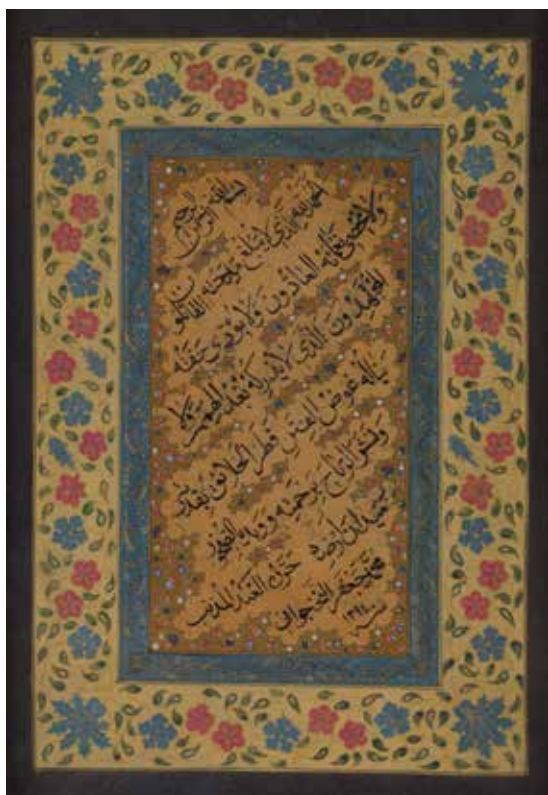 بسم الله الرحمن الرحيم
الحمد لله الذي لا يبلغ مدحته القائلون
ولا يحصي نعمائه العادون ولا يؤدي حقه
المجتهدون الذي لا يدركه بعد الهمم ولا
يناله غوص الفطن فطر الخلائق بقدرته
ونشر الرياح برحمته ووتد بالصخور
ميدان ارضه حرره العبد المذنب
محمد جعفر